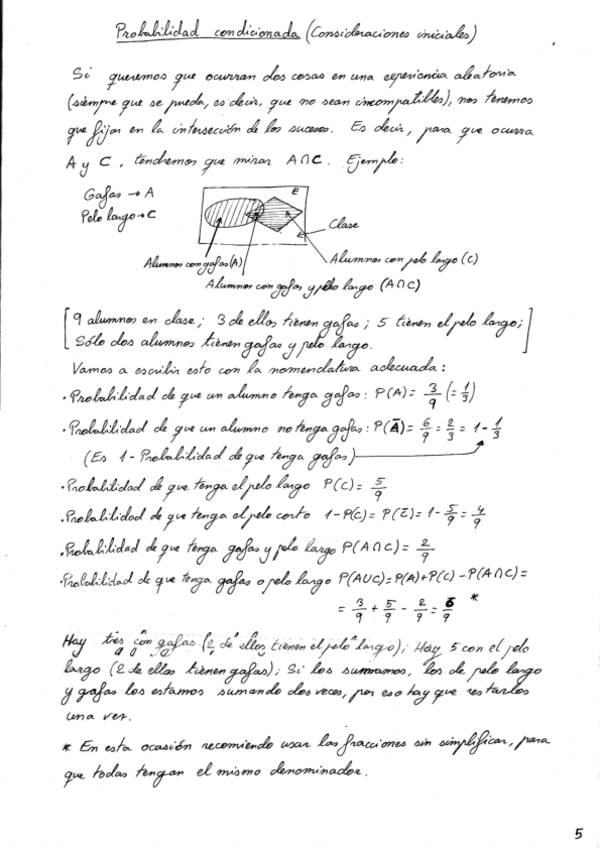 Probabilidad condicionada (Consideraciones iniciales)
Si queremos que ocurran dos cosas en una experiencia aleatoria
(siempre que se pueda, es decir, que no sean incompatibles), nos tenemos
que fijar en la intersección de los sucesos. Es decir, para que ocurra
A y C, tendremos que mirar A∩C. Ejemplo:
Gafas → A
Pelo largo → C
E
Clase
Alumnos con gafas (A)
Alumnos con pelo largo (C)
Alumnos con gafas y pelo largo (A∩C)
[9 alumnos en clase; 3 de ellos tienen gafas; 5 tienen el pelo largo;
Sólo dos alumnos tienen gafas y pelo largo.]
Vamos a escribir esto con la nomenclatura adecuada:
· Probabilidad de que un alumno tenga gafas: P(A) = 3/9 (= 1/3)
· Probabilidad de que un alumno no tenga gafas: P(Ā) = 6/9 = 2/3 = 1 - 1/3
(Es 1 - Probabilidad de que tenga gafas)
· Probabilidad de que tenga el pelo largo P(C) = 5/9
· Probabilidad de que tenga el pelo corto 1-P(C) = P(C̄) = 1 - 5/9 = 4/9
· Probabilidad de que tenga gafas y pelo largo P(A∩C) = 2/9
· Probabilidad de que tenga gafas o pelo largo P(A∪C) = P(A) + P(C) - P(A∩C) =
= 3/9 + 5/9 - 2/9 = 6/9 *
Hay tres con gafas (2 de ellos tienen el pelo largo); Hay 5 con el pelo
largo (2 de ellos tienen gafas); Si los sumamos, los de pelo largo
y gafas los estamos sumando dos veces, por eso hay que restarlos
una vez.
* En esta ocasión recomiendo usar las fracciones sin simplificar, para
que todas tengan el mismo denominador.
5